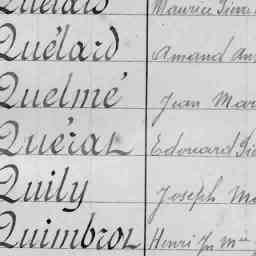 Maurice Pierre
Quélard Amand
Quelmé Jean Mar
Quérat Edouard
Quily Joseph Ma
Quimbrot Henri Jn Mie